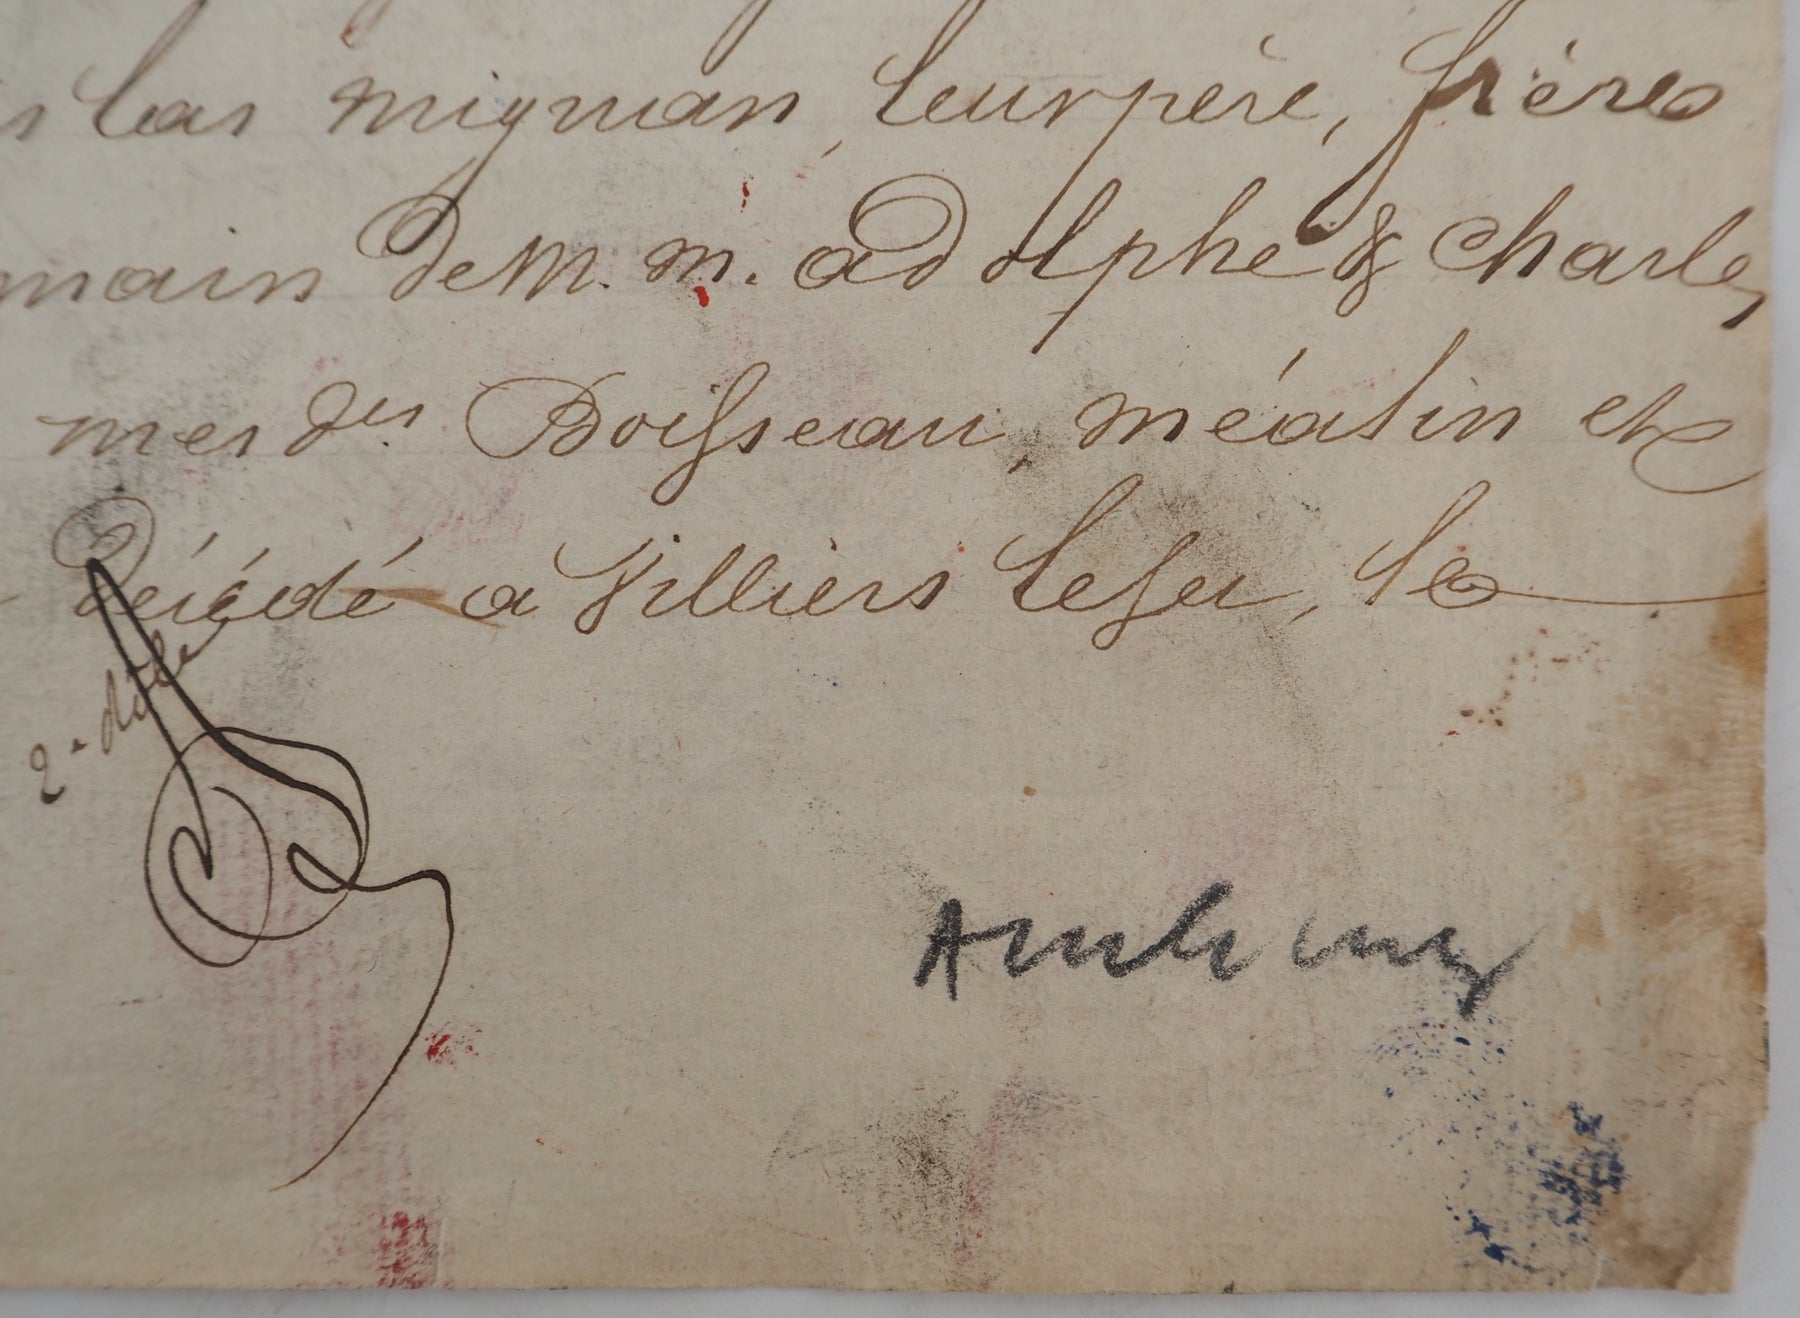 las mignan, leur père, frères
main de M. M. adolphe & Charles
mes des Boisseau, méalin et
décédé a Villiers lesec, le